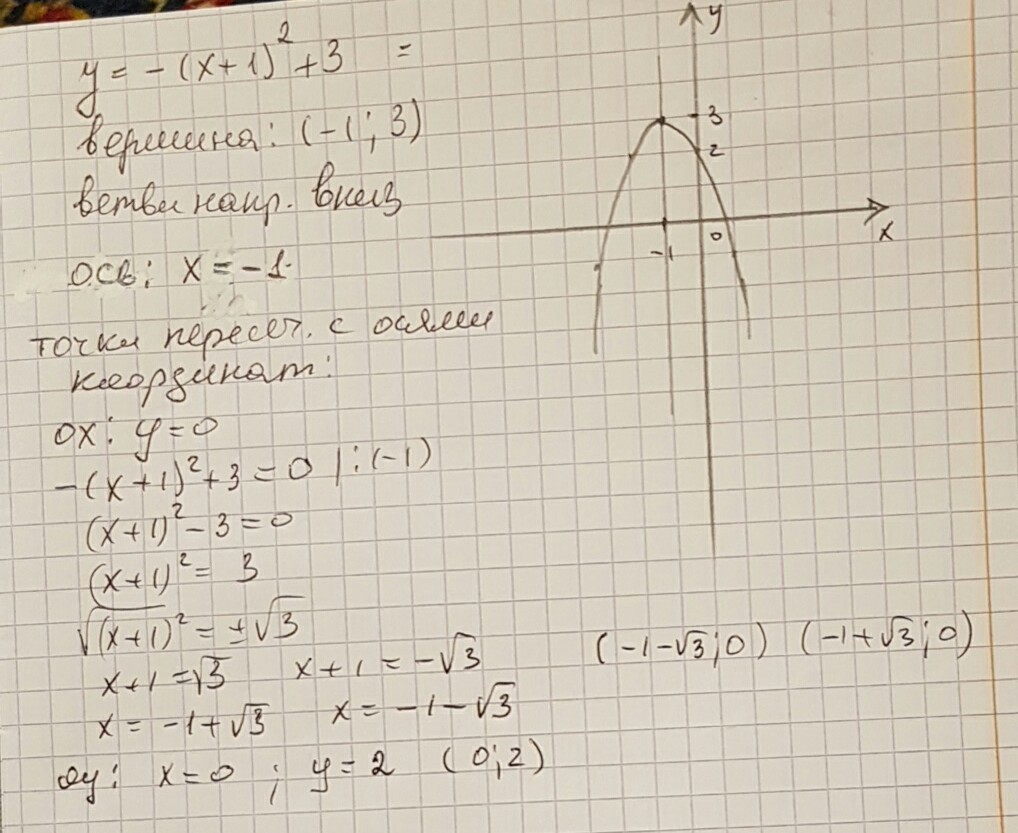 y = -(x+1)² + 3 =
вершина: (-1; 3)
ветви напр. вниз
ось: x = -1.
точки пересеч. с осями
координат:
ox: y=0
-(x+1)²+3=0 |:(-1)
(x+1)²-3=0
(x+1)²= 3
√(x+1)² = ±√3
x+1=√3 x+1=-√3
x = -1+√3 x = -1-√3
(-1-√3;0) (-1+√3;0)
oy: x=0 ; y=2 (0;2)
y
3
2
0
x
-1